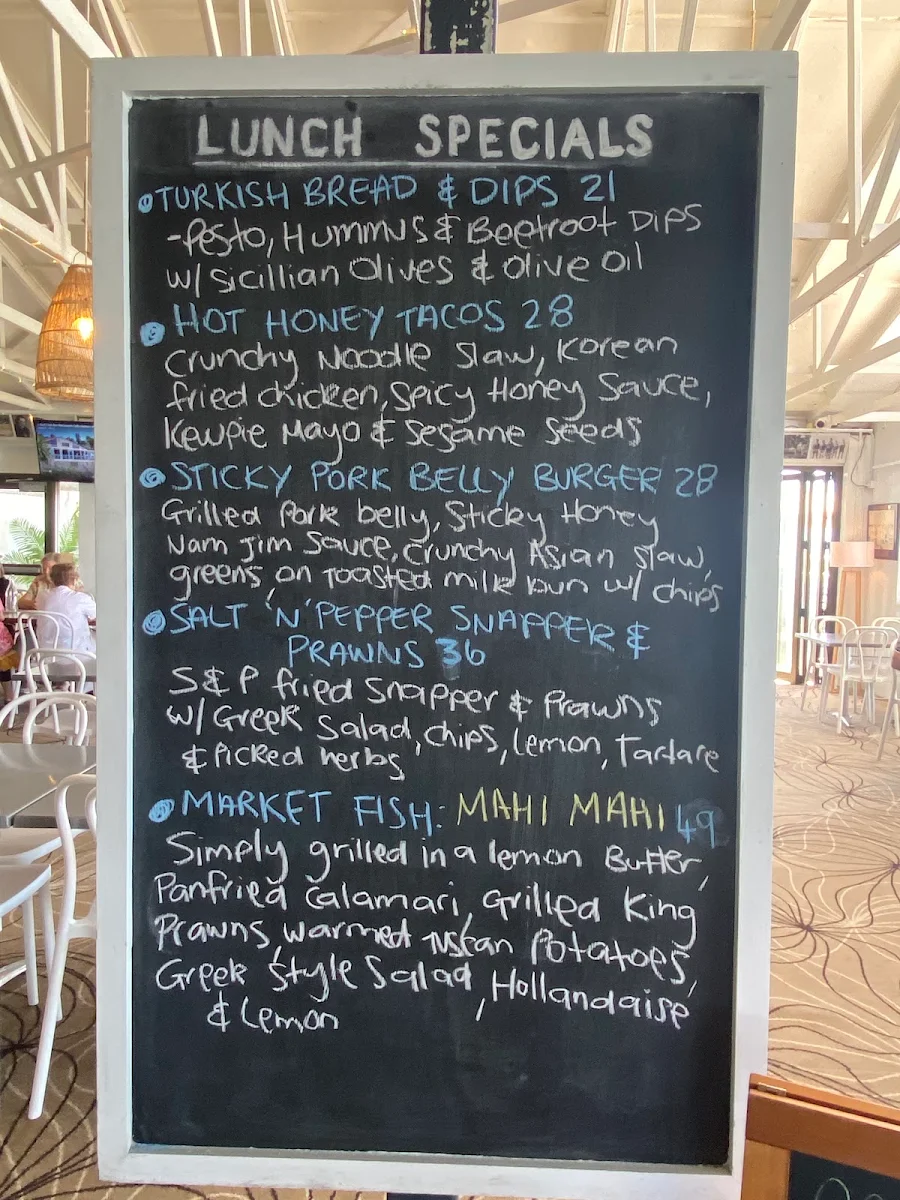 LUNCH SPECIALS
TURKISH BREAD & DIPS 21
-Pesto, Hummus & Beetroot Dips
w/ Sicillian Olives & Olive Oil
HOT HONEY TACOS 28
Crunchy Noodle Slaw, Korean
fried chicken, Spicy Honey Sauce,
Kewpie Mayo & Sesame Seeds
STICKY PORK BELLY BURGER 28
Grilled Pork belly, Sticky Honey
Nam Jim Sauce, Crunchy Asian Slaw,
greens, on Toasted milk bun w/ chips
SALT 'N' PEPPER SNAPPER &
PRAWNS 36
S & P fried Snapper & Prawns
w/ Greek Salad, chips, lemon, Tartare
& Picked herbs
MARKET FISH: MAHI MAHI 49
Simply grilled in a lemon Butter,
Panfried Calamari, Grilled King
Prawns, warmed Tuscan Potatoes,
Greek Style Salad, Hollandaise
& Lemon